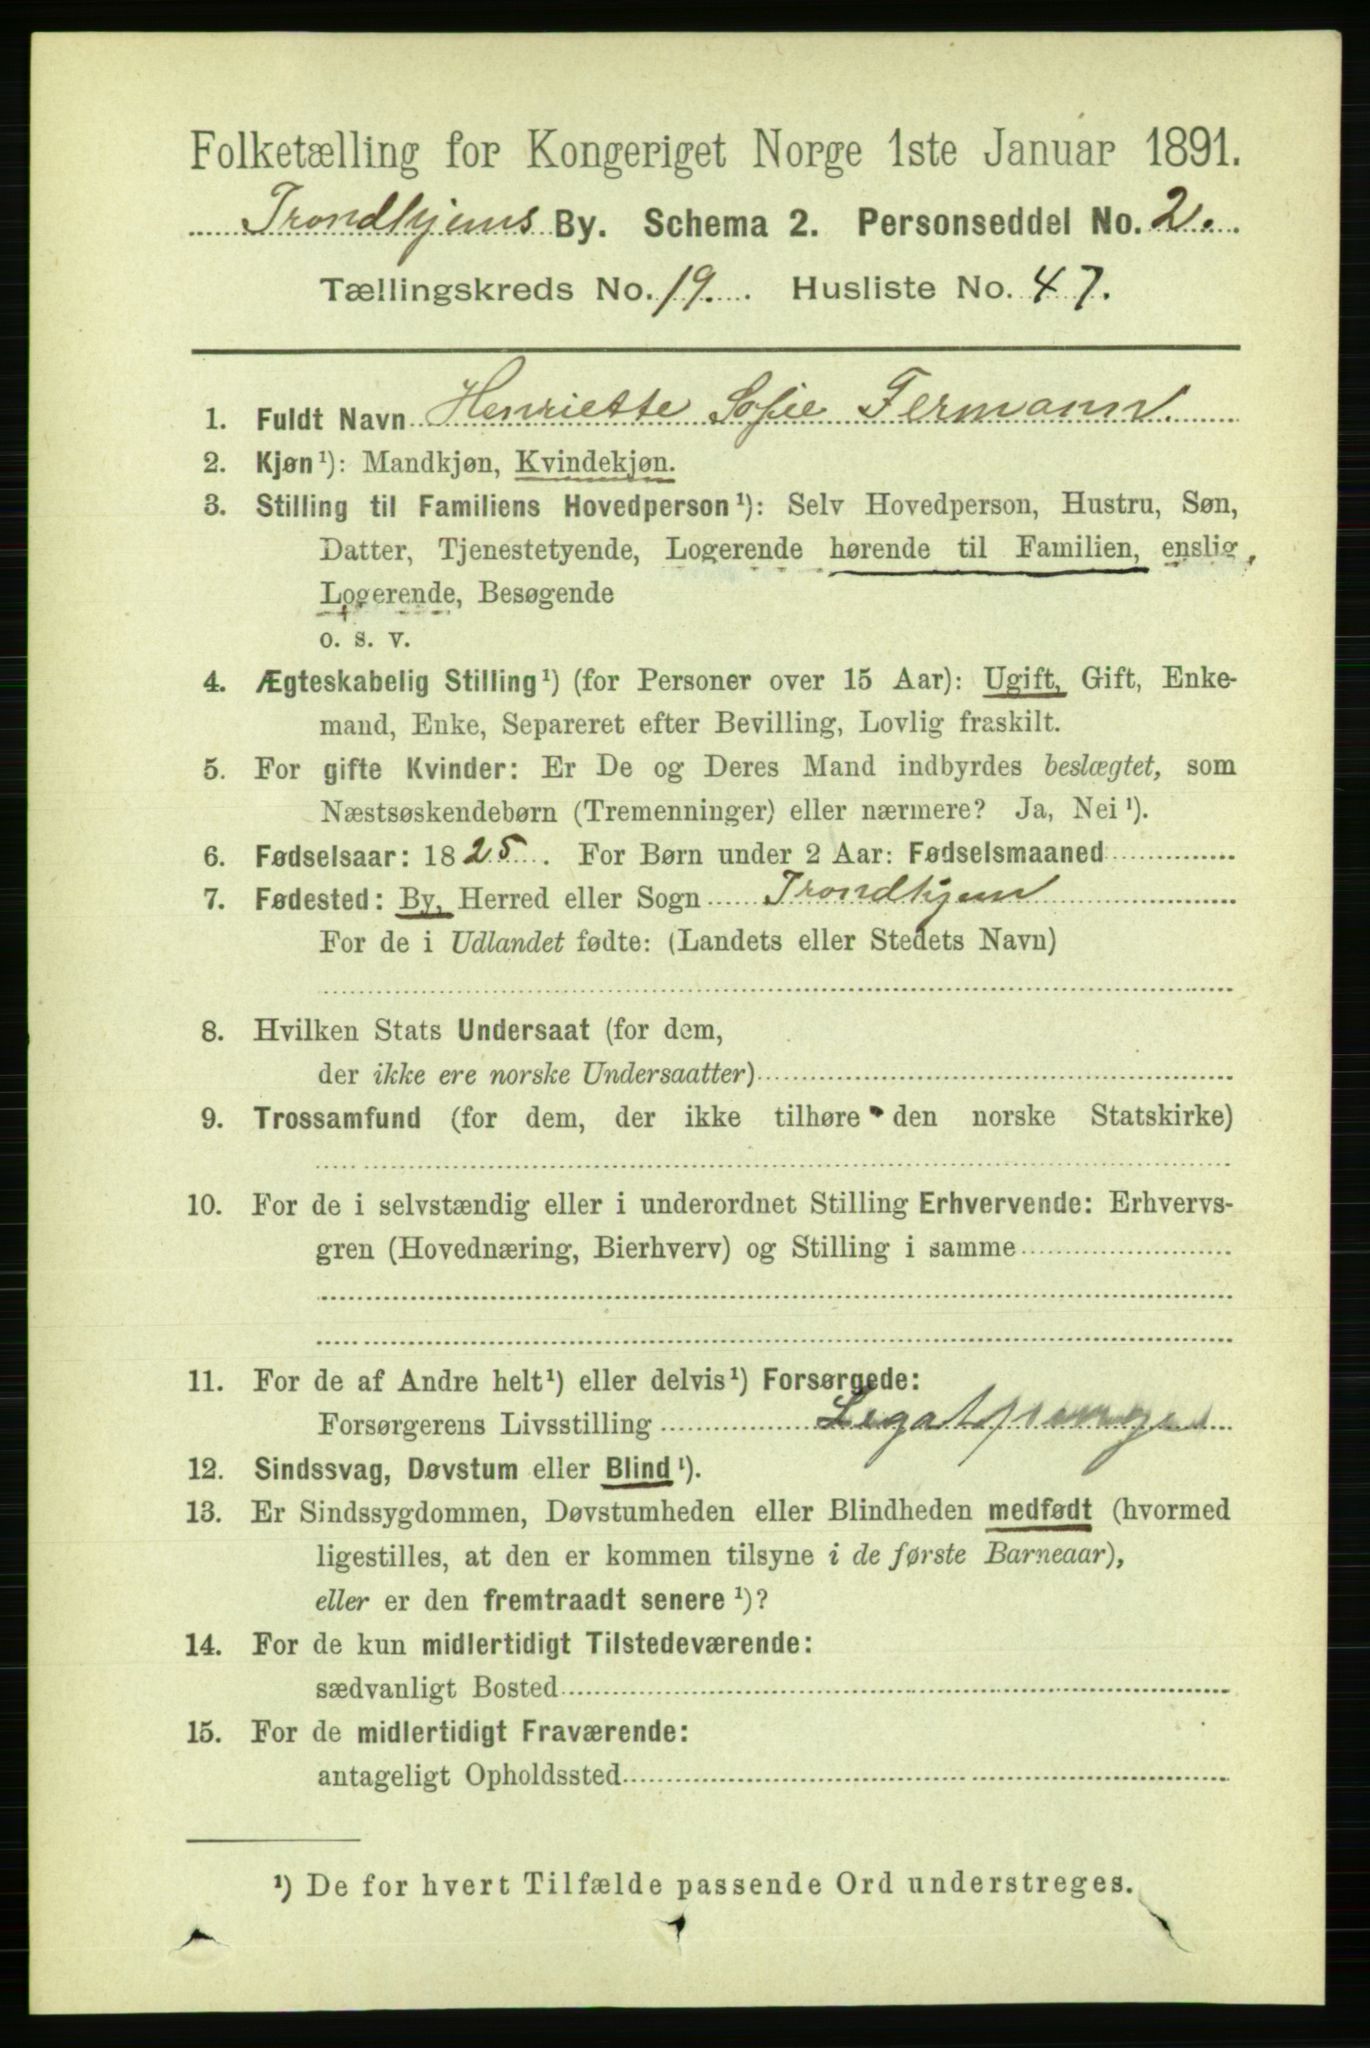 Folketælling for Kongeriget Norge 1ste Januar 1891.
Trondhjems By. Schema 2. Personseddel No. 2.
Tællingskreds No. 19. Husliste No. 47.
1. Fuldt Navn Henriette Sofie Fermann.
2. Kjøn¹): Mandkjøn, Kvindekjøn.
3. Stilling til Familiens Hovedperson¹): Selv Hovedperson, Hustru, Søn,
Datter, Tjenestetyende, Logerende hørende til Familien, enslig
Logerende, Besøgende
o. s. v.
4. Ægteskabelig Stilling¹) (for Personer over 15 Aar): Ugift, Gift, Enke-
mand, Enke, Separeret efter Bevilling, Lovlig fraskilt.
5. For gifte Kvinder: Er De og Deres Mand indbyrdes beslægtet, som
Næstsøskendebørn (Tremenninger) eller nærmere? Ja, Nei¹).
6. Fødselsaar: 1825. For Børn under 2 Aar: Fødselsmaaned
7. Fødested: By, Herred eller Sogn Trondhjem
For de i Udlandet fødte: (Landets eller Stedets Navn)
8. Hvilken Stats Undersaat (for dem,
der ikke ere norske Undersaatter)
9. Trossamfund (for dem, der ikke tilhøre den norske Statskirke)
10. For de i selvstændig eller i underordnet Stilling Erhvervende: Erhvervs-
gren (Hovednæring, Bierhverv) og Stilling i samme
11. For de af Andre helt¹) eller delvis¹) Forsørgede:
Forsørgerens Livsstilling
12. Sindssvag, Døvstum eller Blind¹).
13. Er Sindssygdommen, Døvstumheden eller Blindheden medfødt (hvormed
ligestilles, at den er kommen tilsyne i de første Barneaar),
eller er den fremtraadt senere¹)?
14. For de kun midlertidigt Tilstedeværende:
sædvanligt Bosted
15. For de midlertidigt Fraværende:
antageligt Opholdssted
¹) De for hvert Tilfælde passende Ord understreges.